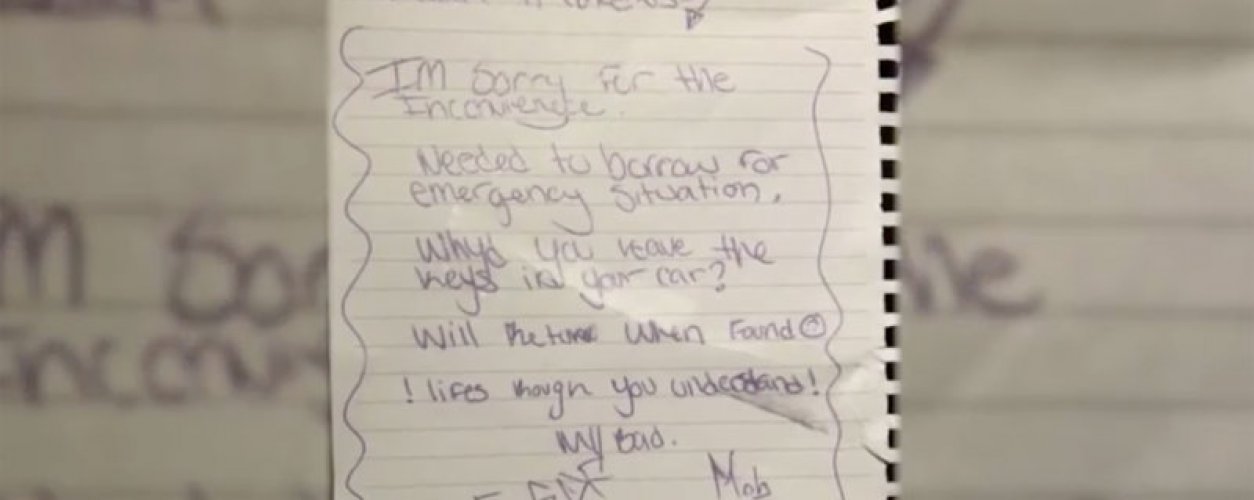 IM Sorry For the
Inconvience.
Needed to borrow for
emergency situation.
Why'd you leave the
keys in your car?
Will Return When Found
! lifes though you understand!
My bad.
Mob